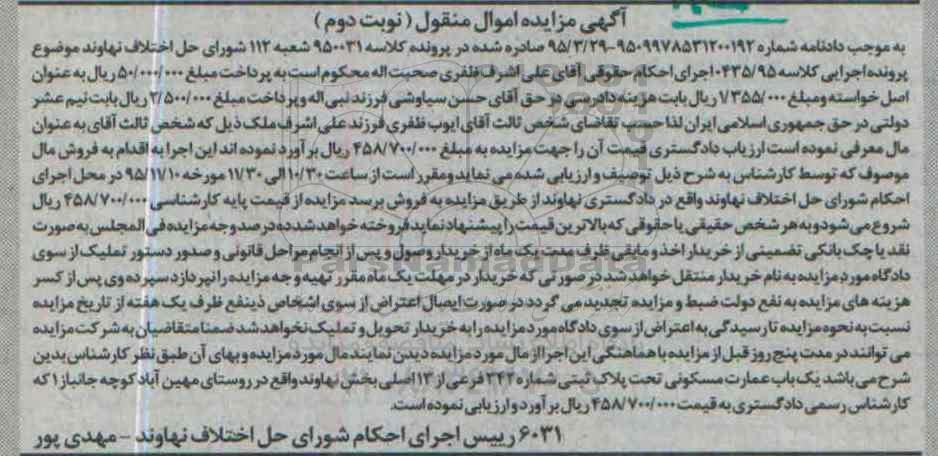 آگهی مزایده اموال منقول (نوبت دوم)
به موجب دادنامه شماره ۹۵۰۹۹۷۸۵۳۱۲۰۰۱۹۲-۹۵/۳/۲۹ صادره شده در پرونده کلاسه ۹۵۰۰۳۱ شعبه ۱۱۲ شورای حل اختلاف نهاوند موضوع
پرونده اجرایی کلاسه ۰۴۳۵/۹۵ اجرای احکام حقوقی آقای علی اشرف ظفری صحبت اله محکوم است به پرداخت مبلغ ۵۰/۰۰۰/۰۰۰ ریال به عنوان
اصل خواسته ومبلغ ۱/۳۵۵/۰۰۰ ریال بابت هزینه دادرسی در حق آقای حسن سیاوشی فرزند نبی اله وپرداخت مبلغ ۲/۵۰۰/۰۰۰ ریال بابت نیم عشر
دولتی در حق جمهوری اسلامی ایران لذا حسب تقاضای شخص ثالث آقای ایوب ظفری فرزند علی اشرف ملک ذیل که شخص ثالث آقای به عنوان
مال معرفی نموده است ارزیاب دادگستری قیمت آن را جهت مزایده به مبلغ ۴۵۸/۷۰۰/۰۰۰ ریال برآورد نموده اند این اجرا به اقدام به فروش مال
موصوف که توسط کارشناس به شرح ذیل توصیف و ارزیابی شده می نماید ومقرر است از ساعت ۱۰/۳۰ الی ۱۱/۳۰ مورخه ۹۵/۱۱/۱۰ در محل اجرای
احکام شورای حل اختلاف نهاوند واقع در دادگستری نهاوند از طریق مزایده به فروش برسد مزایده از قیمت پایه کارشناسی ۴۵۸/۷۰۰/۰۰۰ ریال
شروع می شود و به هر شخص حقیقی یا حقوقی که بالاترین قیمت را پیشنهاد نماید فروخته خواهد شد ده درصد وجه مزایده فی المجلس به صورت
نقد یا چک بانکی تضمینی از خریدار اخذ و مابقی ظرف مدت یک ماه از خریدار وصول و پس از انجام مراحل قانونی و صدور دستور تملیک از سوی
دادگاه مورد مزایده به نام خریدار منتقل خواهد شد در صورتی که خریدار در مهلت یک ماه مقرر تهیه وجه مزایده را نپردازد سپرده وی پس از کسر
هزینه های مزایده به نفع دولت ضبط و مزایده تجدید می گردد در صورت ایصال اعتراض از سوی اشخاص ذینفع ظرف یک هفته از تاریخ مزایده
نسبت به نحوه مزایده تا رسیدگی به اعتراض از سوی دادگاه مورد مزایده را به خریدار تحویل و تملیک نخواهد شد ضمنا متقاضیان به شرکت مزایده
می توانند در مدت پنج روز قبل از مزایده با هماهنگی این اجرا از مال مورد مزایده دیدن نمایند مال مورد مزایده و بهای آن طبق نظر کارشناس بدین
شرح می باشد یک باب عمارت مسکونی تحت پلاک ثبتی شماره ۳۴۲ فرعی از ۱۳ اصلی بخش نهاوند واقع در روستای مهین آباد کوچه جانباز ۱ که
کارشناس رسمی دادگستری به قیمت ۴۵۸/۷۰۰/۰۰۰ ریال برآورد و ارزیابی نموده است.
۶۰۳۱ رییس اجرای احکام شورای حل اختلاف نهاوند - مهدی پور